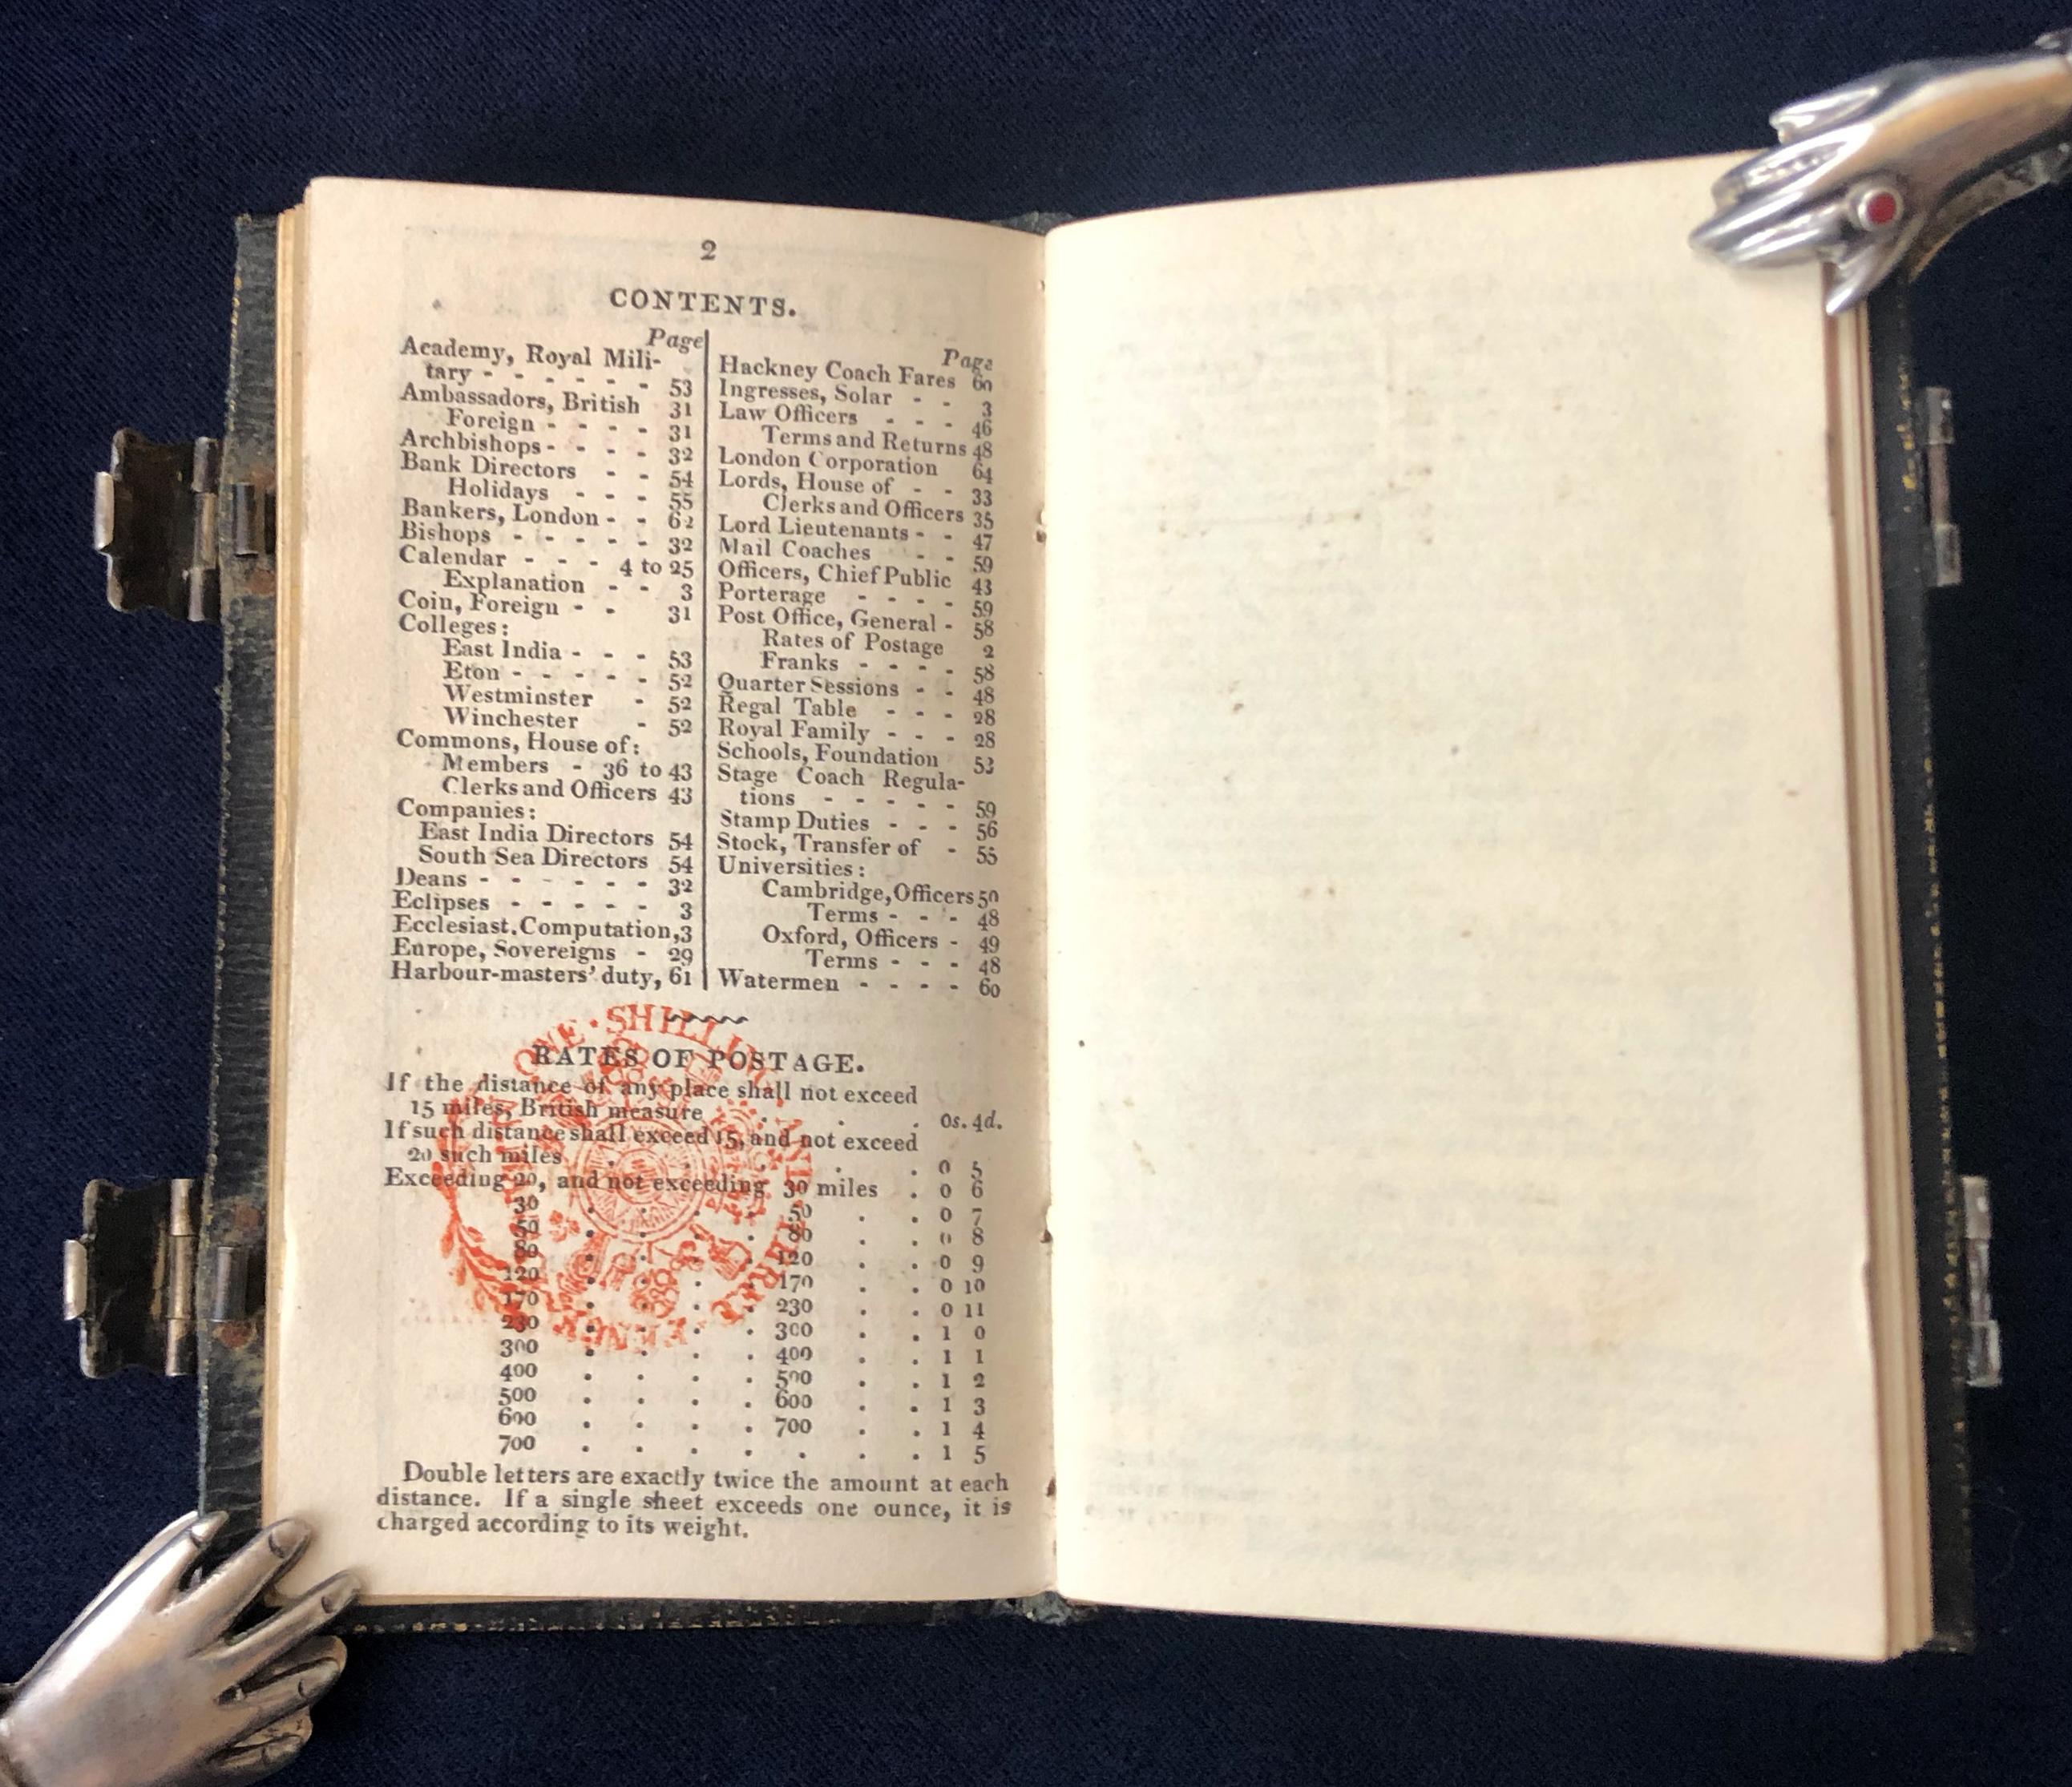 2
CONTENTS.
Page
Academy, Royal Mili-
tary - - - - - - 53
Ambassadors, British 31
Foreign - - - - 31
Archbishops - - - - 32
Bank Directors - - 54
Holidays - - - 55
Bankers, London - - 62
Bishops - - - - - 32
Calendar - - - 4 to 25
Explanation - - 3
Coin, Foreign - - 31
Colleges:
East India - - - 53
Eton - - - - - 52
Westminster - 52
Winchester - 52
Commons, House of:
Members - 36 to 43
Clerks and Officers 43
Companies:
East India Directors 54
South Sea Directors 54
Deans - - - - - - 32
Eclipses - - - - - 3
Ecclesiast. Computation, 3
Europe, Sovereigns - 29
Harbour-masters' duty, 61
Page
Hackney Coach Fares 60
Ingresses, Solar - - 3
Law Officers - - - 46
Terms and Returns 48
London Corporation 64
Lords, House of - - 33
Clerks and Officers 35
Lord Lieutenants - - 47
Mail Coaches - - 59
Officers, Chief Public 43
Porterage - - - - 59
Post Office, General - 58
Rates of Postage 2
Franks - - - - 58
Quarter Sessions - - 48
Regal Table - - - 28
Royal Family - - - 28
Schools, Foundation 53
Stage Coach Regula-
tions - - - - - 59
Stamp Duties - - - 56
Stock, Transfer of - 55
Universities:
Cambridge, Officers 50
Terms - - - 48
Oxford, Officers - 49
Terms - - - 48
Watermen - - - - 60
ONE · SHILLING
PENCE
RATES OF POSTAGE.
If the distance of any place shall not exceed
15 miles, British measure . . . 0s. 4d.
If such distance shall exceed 15, and not exceed
20 such miles . . . . 0 5
Exceeding 20, and not exceeding 30 miles . 0 6
30 . . . 50 . . 0 7
50 . . . . 80 . . 0 8
80 . . . . 120 . . 0 9
120 . . . . 170 . . 0 10
170 . . . . 230 . . 0 11
230 . . . . 300 . . 1 0
300 . . . . 400 . . 1 1
400 . . . . 500 . . 1 2
500 . . . . 600 . . 1 3
600 . . . . 700 . . 1 4
700 . . . . . . 1 5
Double letters are exactly twice the amount at each
distance. If a single sheet exceeds one ounce, it is
charged according to its weight.